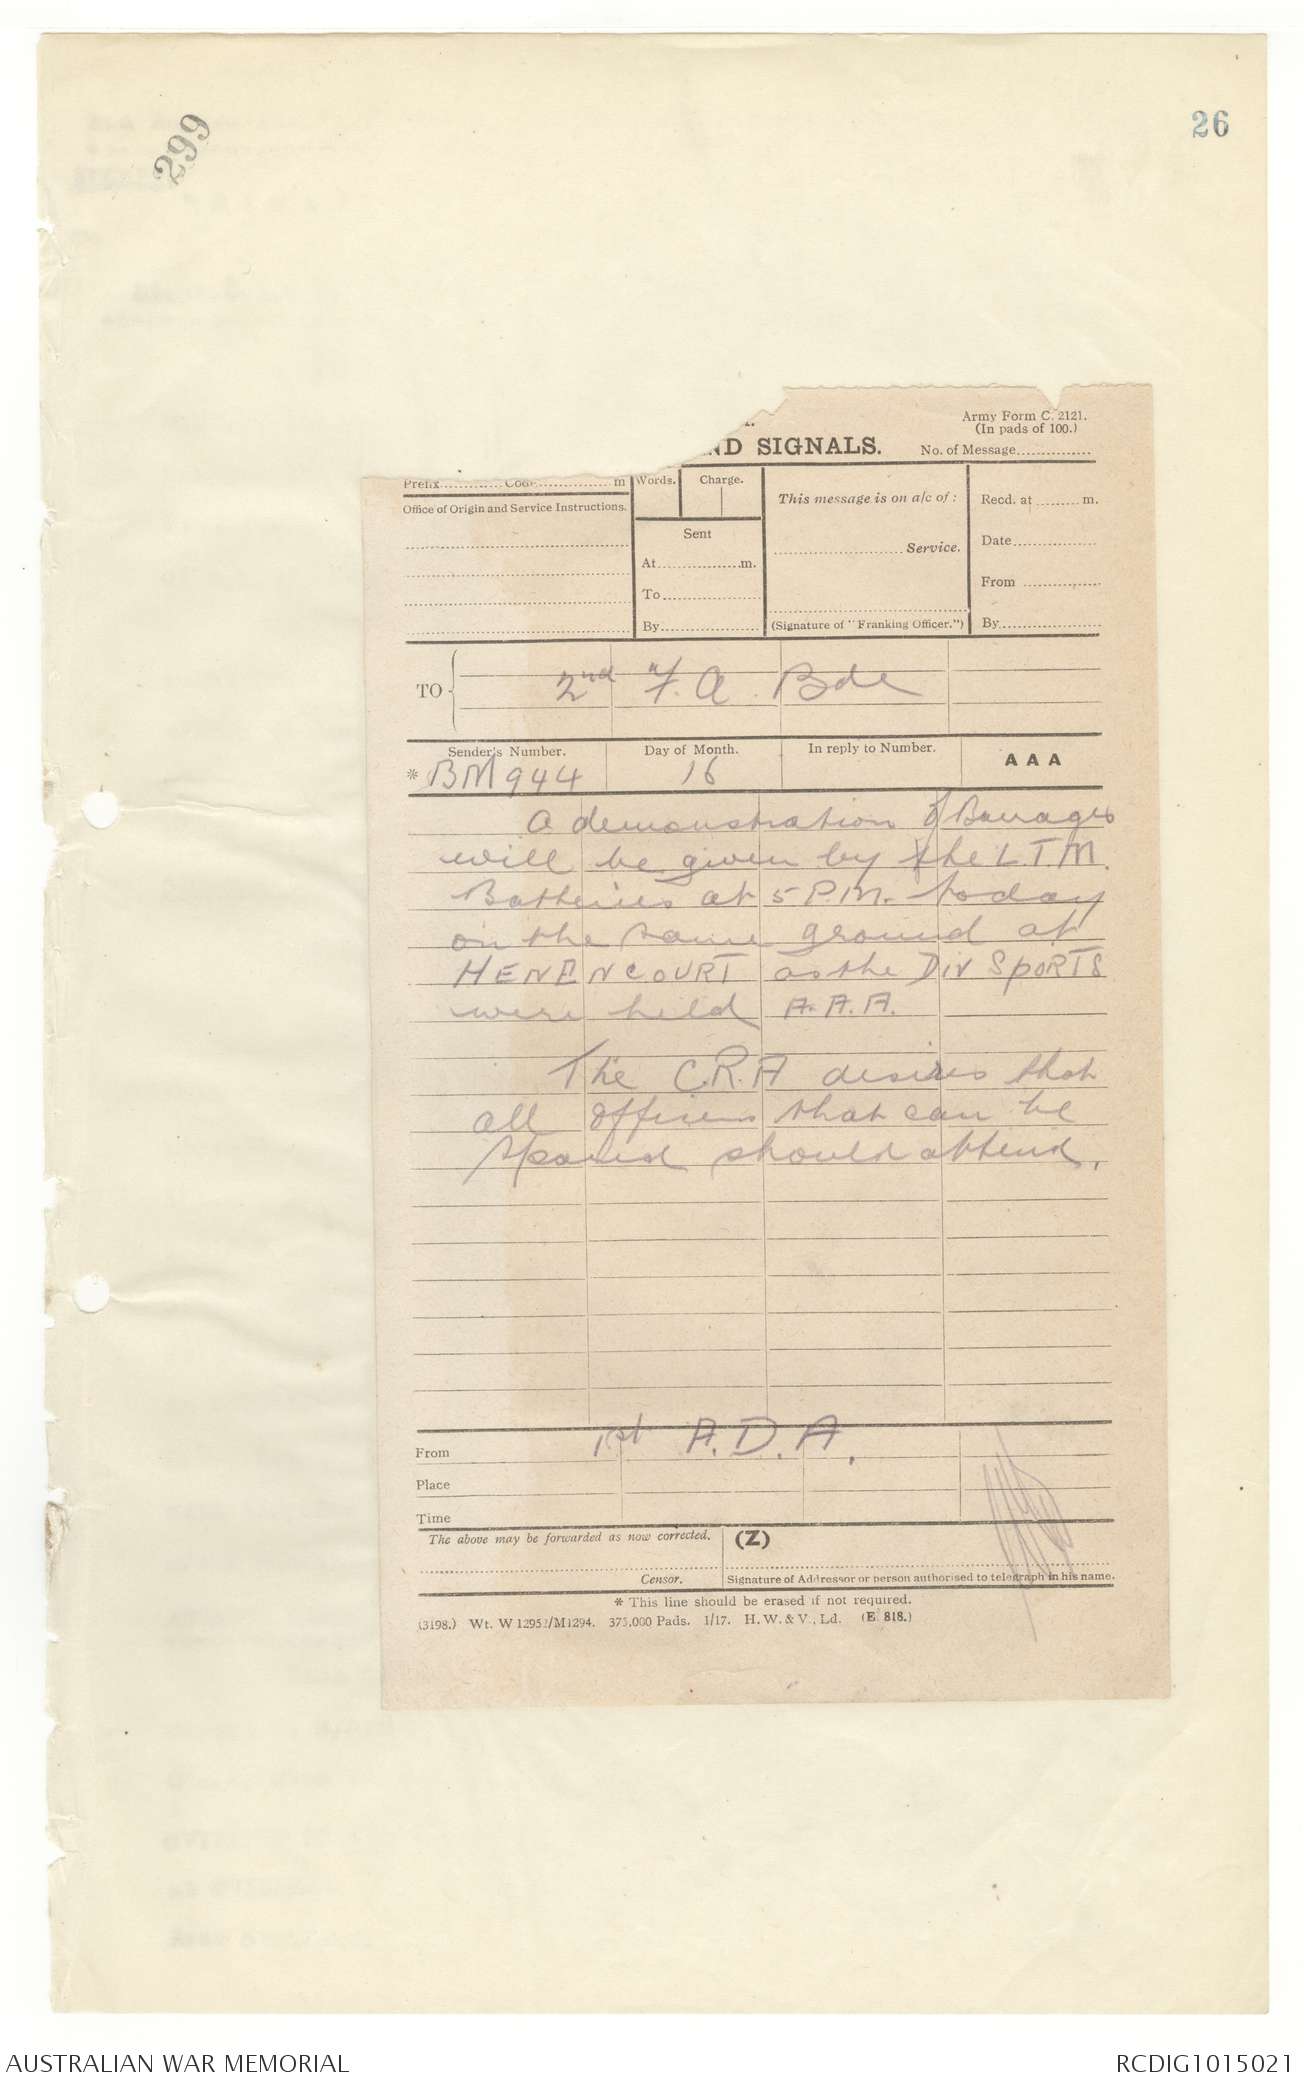 299
26
Army Form C. 2121.
(In pads of 100.)
ND SIGNALS.
No. of Message
Prefix Code m
Words.
Charge.
This message is on a/c of :
Recd. at m.
Office of Origin and Service Instructions.
Sent
Service.
Date
At m.
From
To
By
(Signature of "Franking Officer.")
By
TO
2nd F.A. Bde
Sender's Number.
Day of Month.
In reply to Number.
AAA
* BM 944
16
A demonstration of Barrages
will be given by the L.T.M.
Batteries at 5 P.M. today
on the same ground at
HENENCOURT as the DIV SPORTS
were held A.A.A.
The C.R.A desires that
all officers that can be
spared should attend.
From
1st A.D.A.
Place
Time
The above may be forwarded as now corrected.
(Z)
Censor.
Signature of Addressor or person authorised to telegraph in his name.
* This line should be erased if not required.
(3198.) Wt. W12952/M1294. 375,000 Pads. 1/17. H. W. & V., Ld. (E. 818.)
AUSTRALIAN WAR MEMORIAL
RCDIG1015021